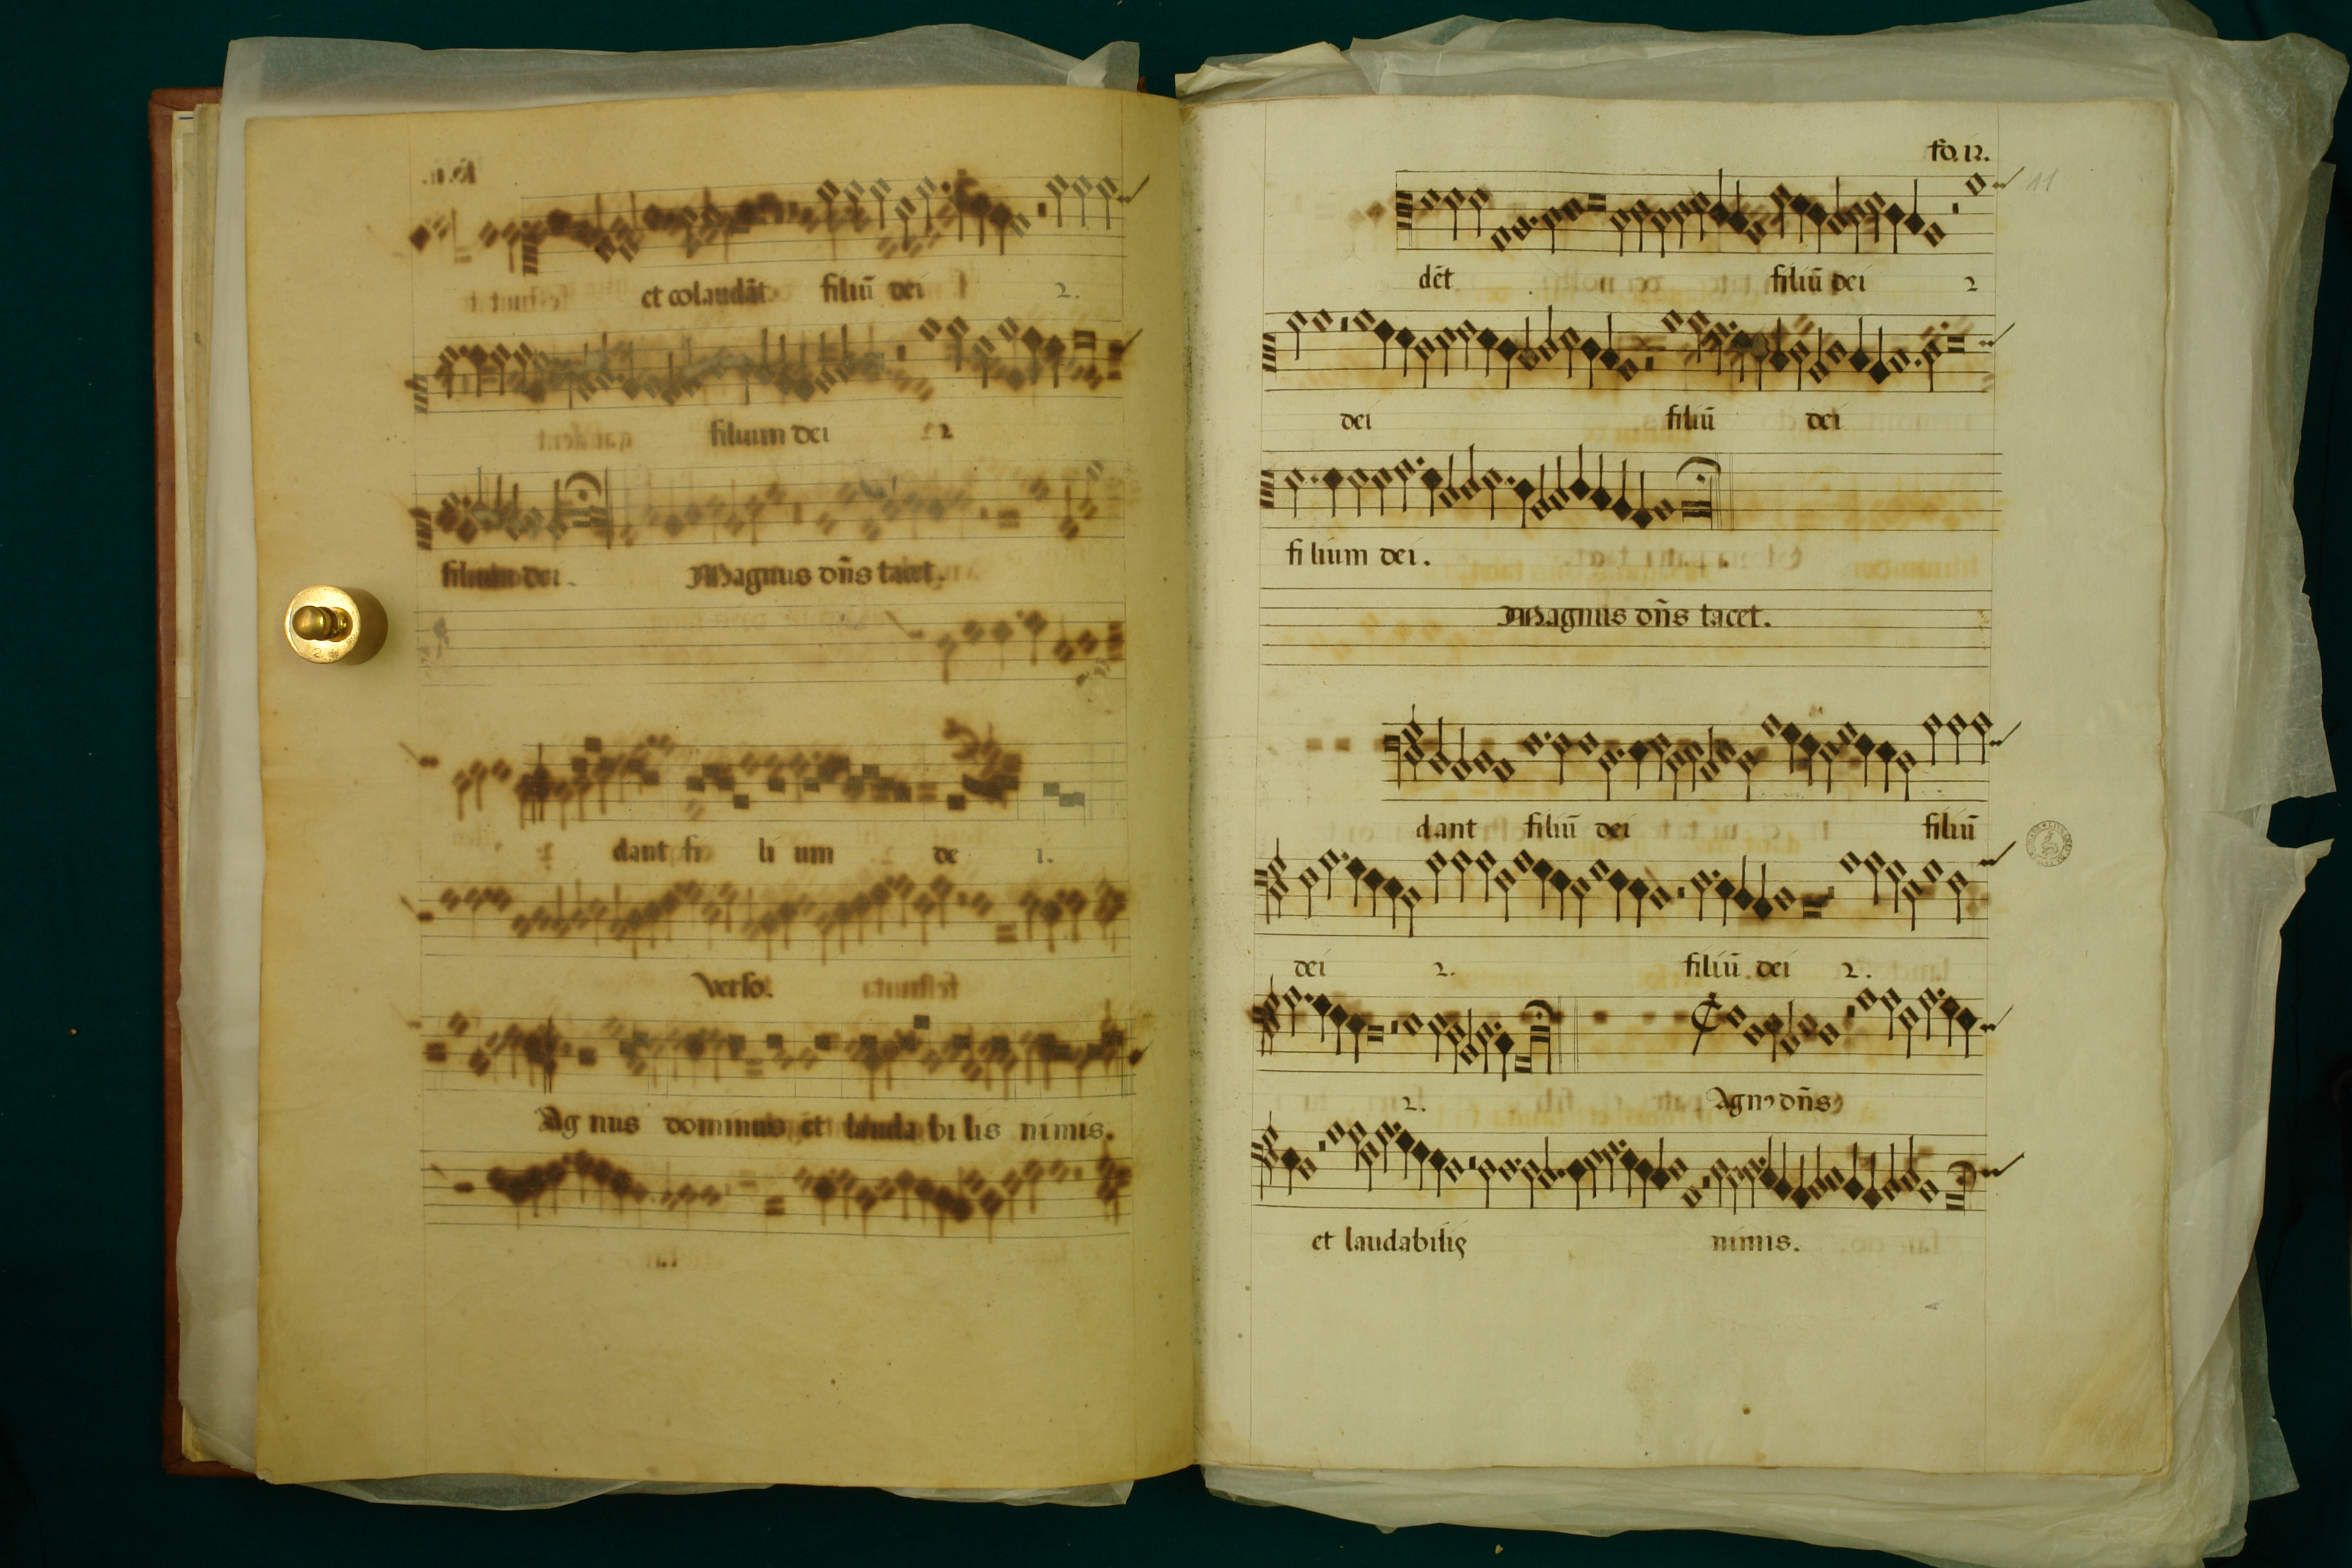 et colaudāt filiū dei 2.
filium dei 2
filium dei. Magnus dn̄s tacet.
dant fi li um de i.
Verso.
Ag nus dominus et lauda bi lis nimis.
fo. 12.
11
dēt filiū dei 2
dei filiū dei
fi lium dei.
Magnus dn̄s tacet.
dant filiū dei filiū
dei 2. filiū dei 2.
2. Agnꝰ dn̄s
et laudabilis nimis.